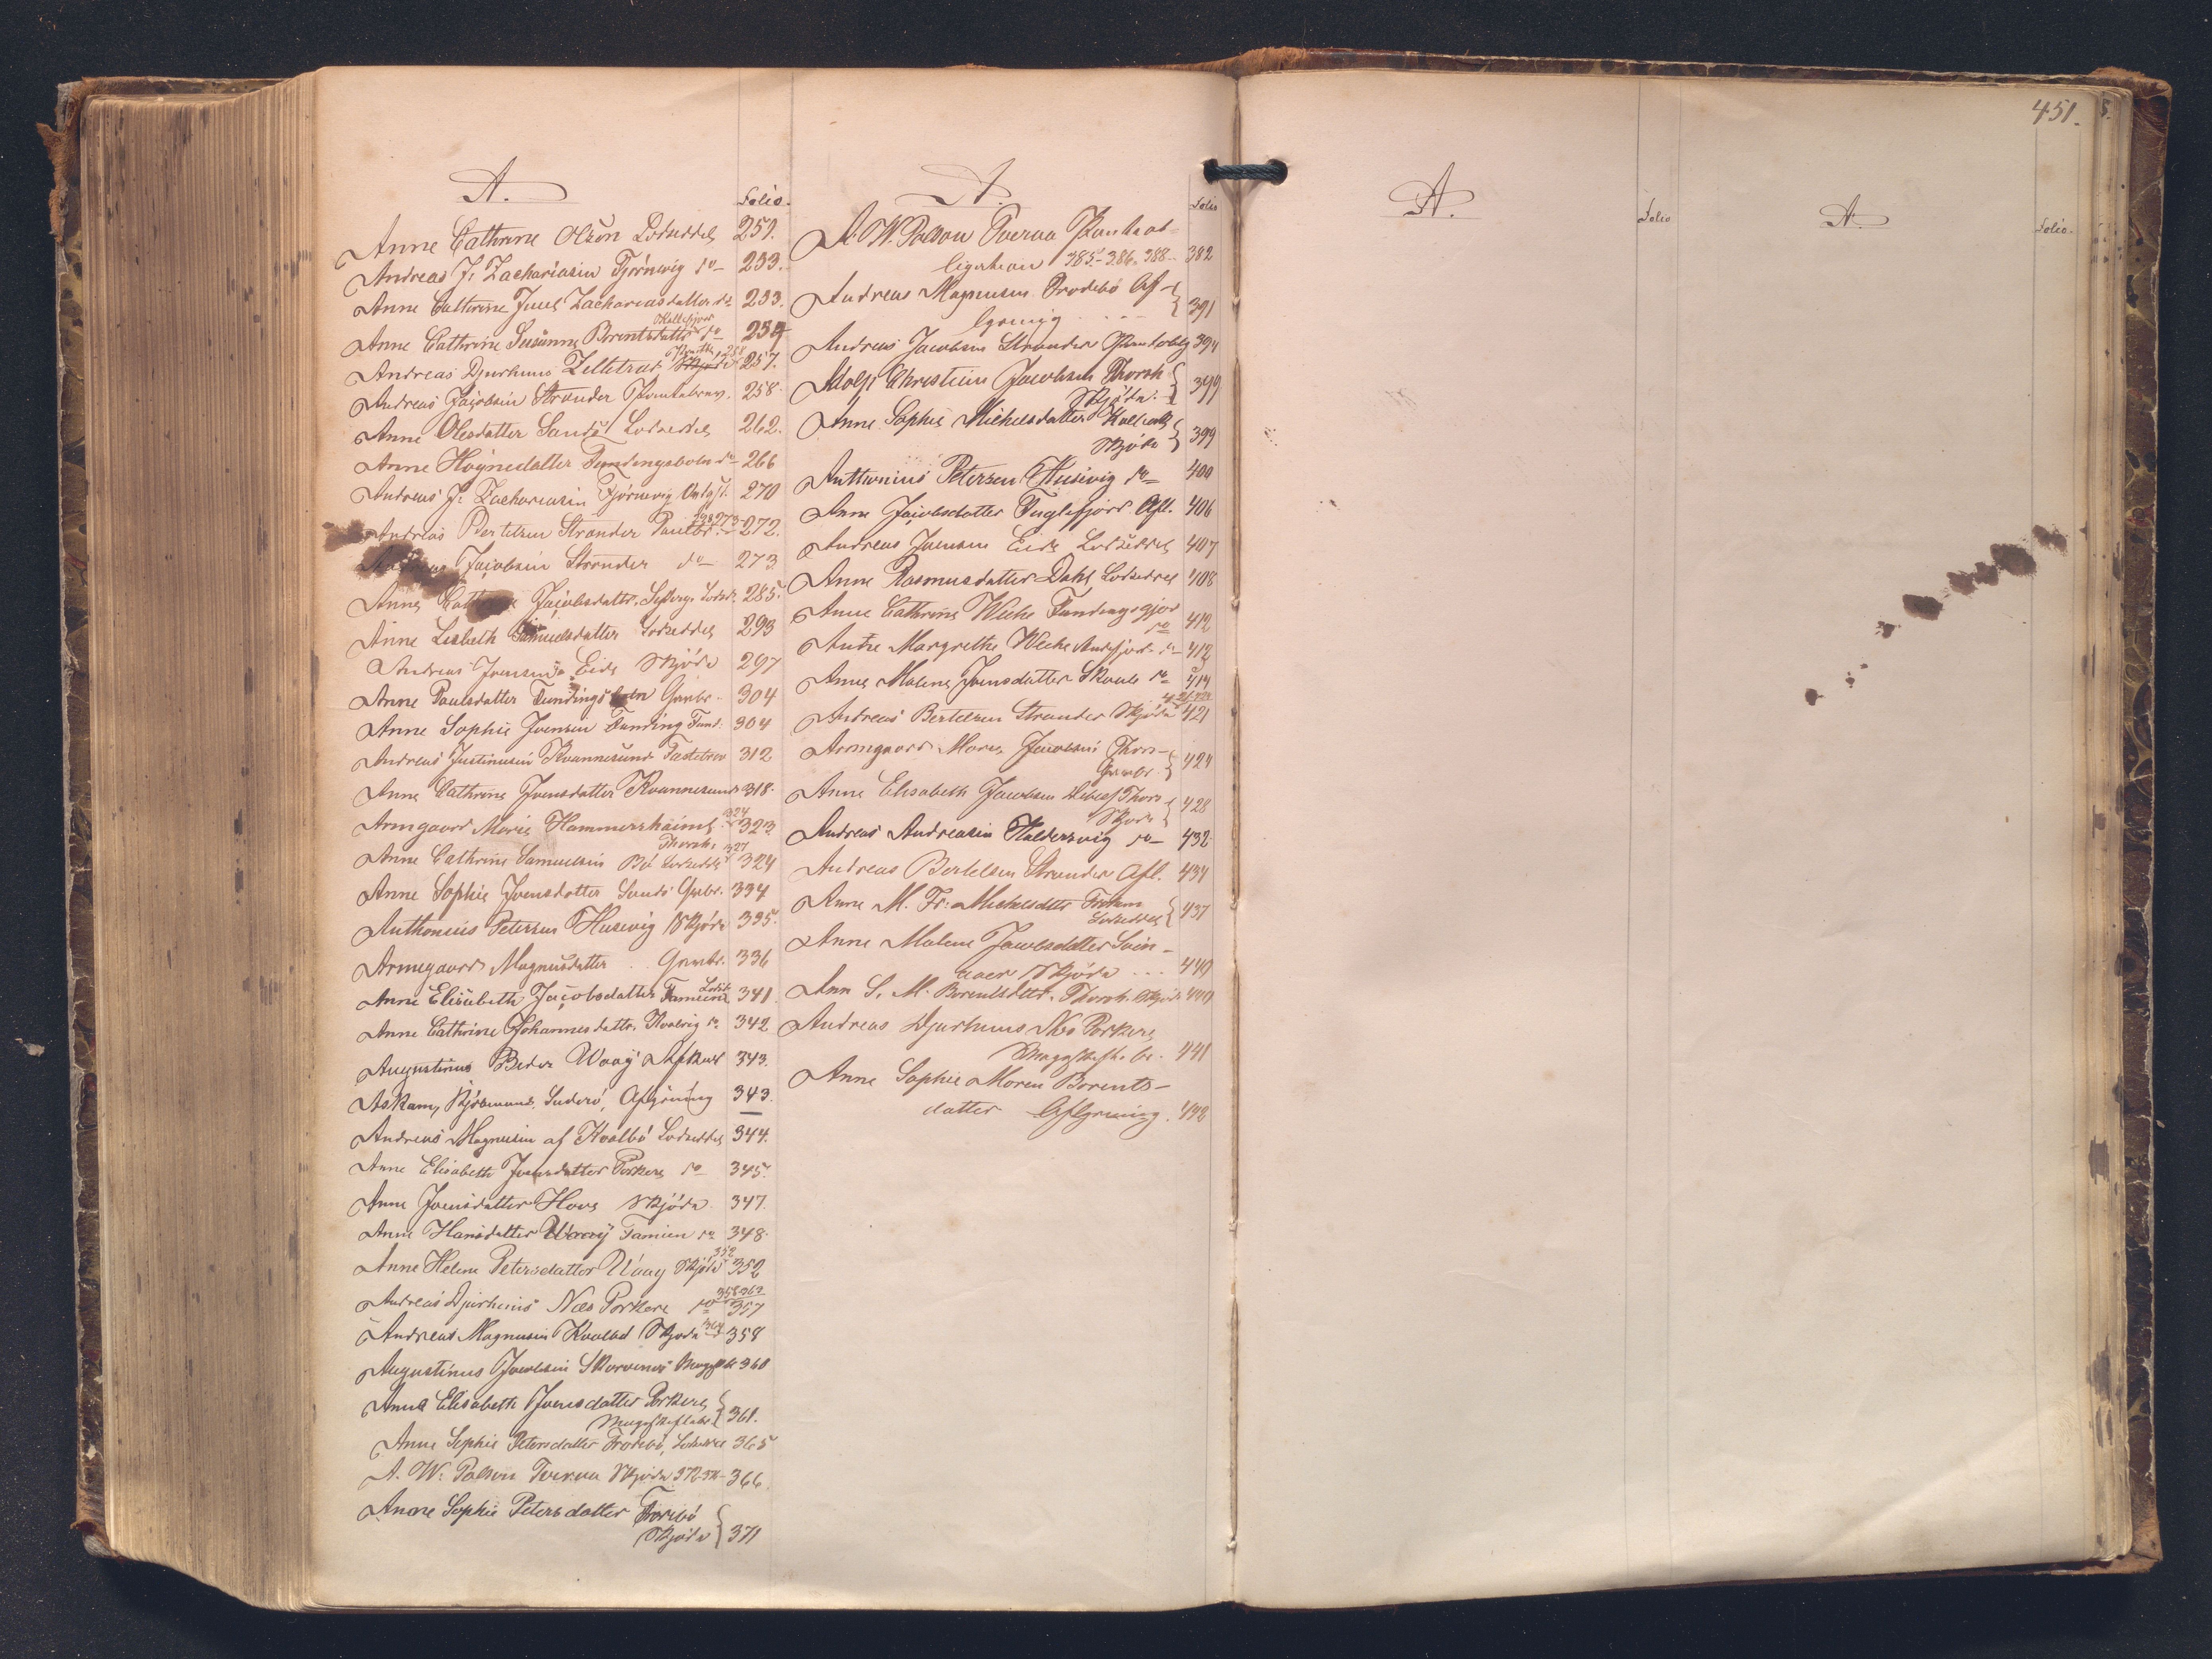 A.
Folio.
Anne Cathrine Olsen Lodseddel 251.
Andreas J. Zachariasen Tjörnevig do 233.
Anne Cathrine Juul Zachariasdatter do 233.
Kollefjord
Anne Cathrine Susanne Berentsdatter do 254
258
Andreas Djurhuus Zelletrad 257.
Andreas Jacobsen Strander 258.
Anne Olesdatter Sand Lodseddel 262.
Anne Högnedatter Fundingsbotn do 266
Andreas J. Zachariasen Tjörnevig 270
273
Andreas Bertelsen Strander 272.
Jacobsen Strander do 273
Anne Jacobsdattr. 285.
Anne Lisbeth Samuelsdatter Lodseddel 293
Andreas Joensen Eide Skjöde 297
Anne Paulsdatter Fundingsbotn Gavebr. 304
Anne Sophie Joensen Funding Fund. 304
Andreas Justinusen Kvannesund 312
Anne Cathrine Joensdatter Kvannesund 318.
324
Armgaard Marie Hammershaimb 323
Thorsh. 327
Anne Cathrine Samuelsen Bö Lodseddel 324
Anne Sophie Joensdatter Sands Gavbr. 334
Anthonius Petersen Husevig Skjöde 335.
Armegaard Magnusdatter Gavebr. 336
Anne Elisabeth Jacobsdatter Famien 341
Anne Cathrine Johannesdattr. Hvalvig do 342
Augustinus Beder Waag Afkald 343.
Askam, Kjöbmand, Suderö, Afgjöning 343.
Andreas Magnusen af Kvalbö Lodseddel 344.
Anne Elisabeth Joensdatter Porkere do 345.
Anne Joensdatter Hove Skjöde 347.
Anne Hansdatter Waag Famien do 348.
352
Anne Helene Petersdatter Waag Skjöde 352
358 363
Andreas Djurhuus Næs Porkere do 357
364
Andreas Magnusen Kvalbö Skjöde 358
Augustinus Jacobsen Skarvenæs 360
Anne Elisabeth Joensdatter Porkere
361.
Anne Sophie Petersdatter Frodebö, Lodseddel 365
A. W. Polson Tveraa Skjöde 366
Anne Sophie Petersdatter Frodebö
Skjöde 371
A.
Folio
A. W. Polson Tveraa Panteob-
ligation 385 - 386. 388 - 382
Andreas Magnusen Frodebö Af-
lysning 391
Andreas Jacobsen Strander Panteoblg 394
Adolf Christian Jacobsen Thorsh.
Skjöde. 399
Anne Sophie Michelsdatter Kvalvik
Skjöde 399
Anthonius Petersen Husevig do 400
Anne Jacobsdatter Fuglefjord Afl. 406
Andreas Joensen Eide Lodseddel 407
Anne Rasmusdatter Dahl Lodseddel 408
Anne Cathrine Weihe Fundingsgjor
do 412
Andre Margrethe Weihe do 412
Anne Malene Joensdatter Skaale do 414
Andreas Bertelsen Strander Skjöde 421
Armgaard Marie Jacobsen Thors-
Gavebr. 424
Anne Elisabeth Jacobsen Thors
Skjöde 428
Andreas Andreasen Haldersvig do 432
Andreas Bertelsen Strander Afl. 434
Anne M. Fr. Michelsdttr
Lodseddel 437
Anne Malene Jacobsdatter Svin-
aaer Skjöde ... 440
Ann S. M. Berentsdttr. Thorsh. Skjöde 440
Andreas Djurhuus Næs Porkere
441
Anne Sophie Maren Berents-
datter Aflysning. 442
A.
Folio
A.
Folio.
451.